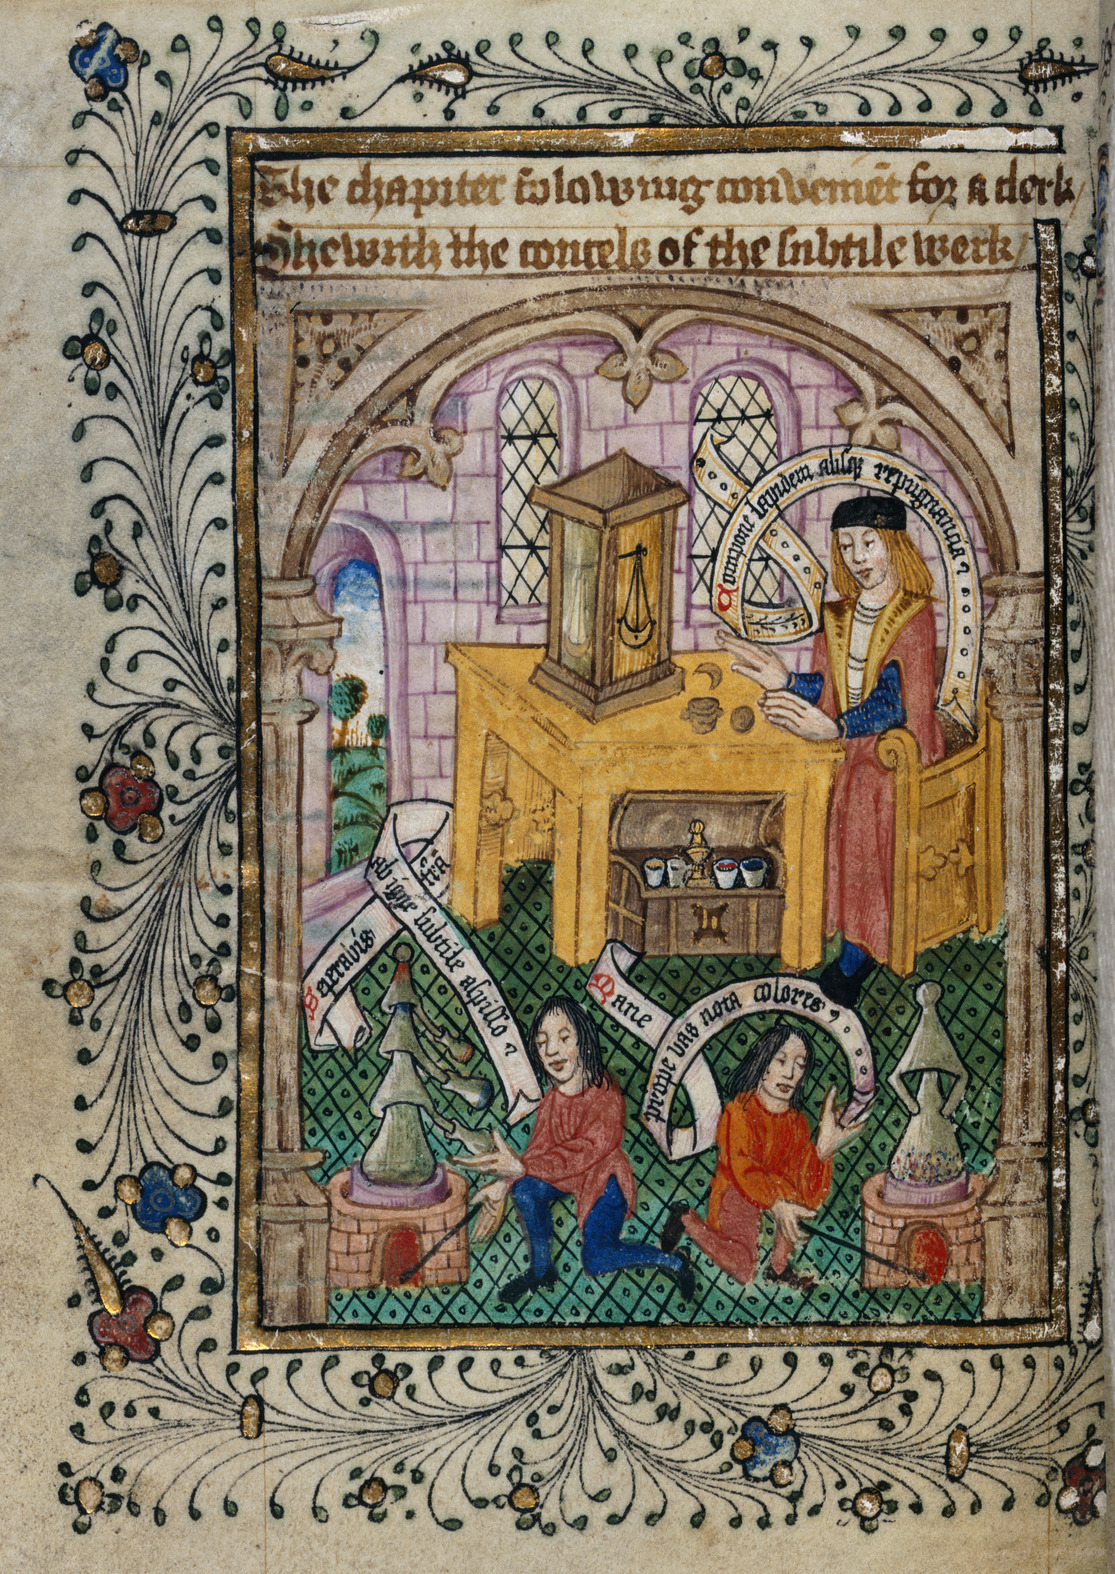 The chapiter folowing convenient for a clerk
Shewith the councels of the subtile werk
Compone lapidem absque repugnancia
Seperabis terra
ab igne subtile a spisso
Mane
prope vas nota colores